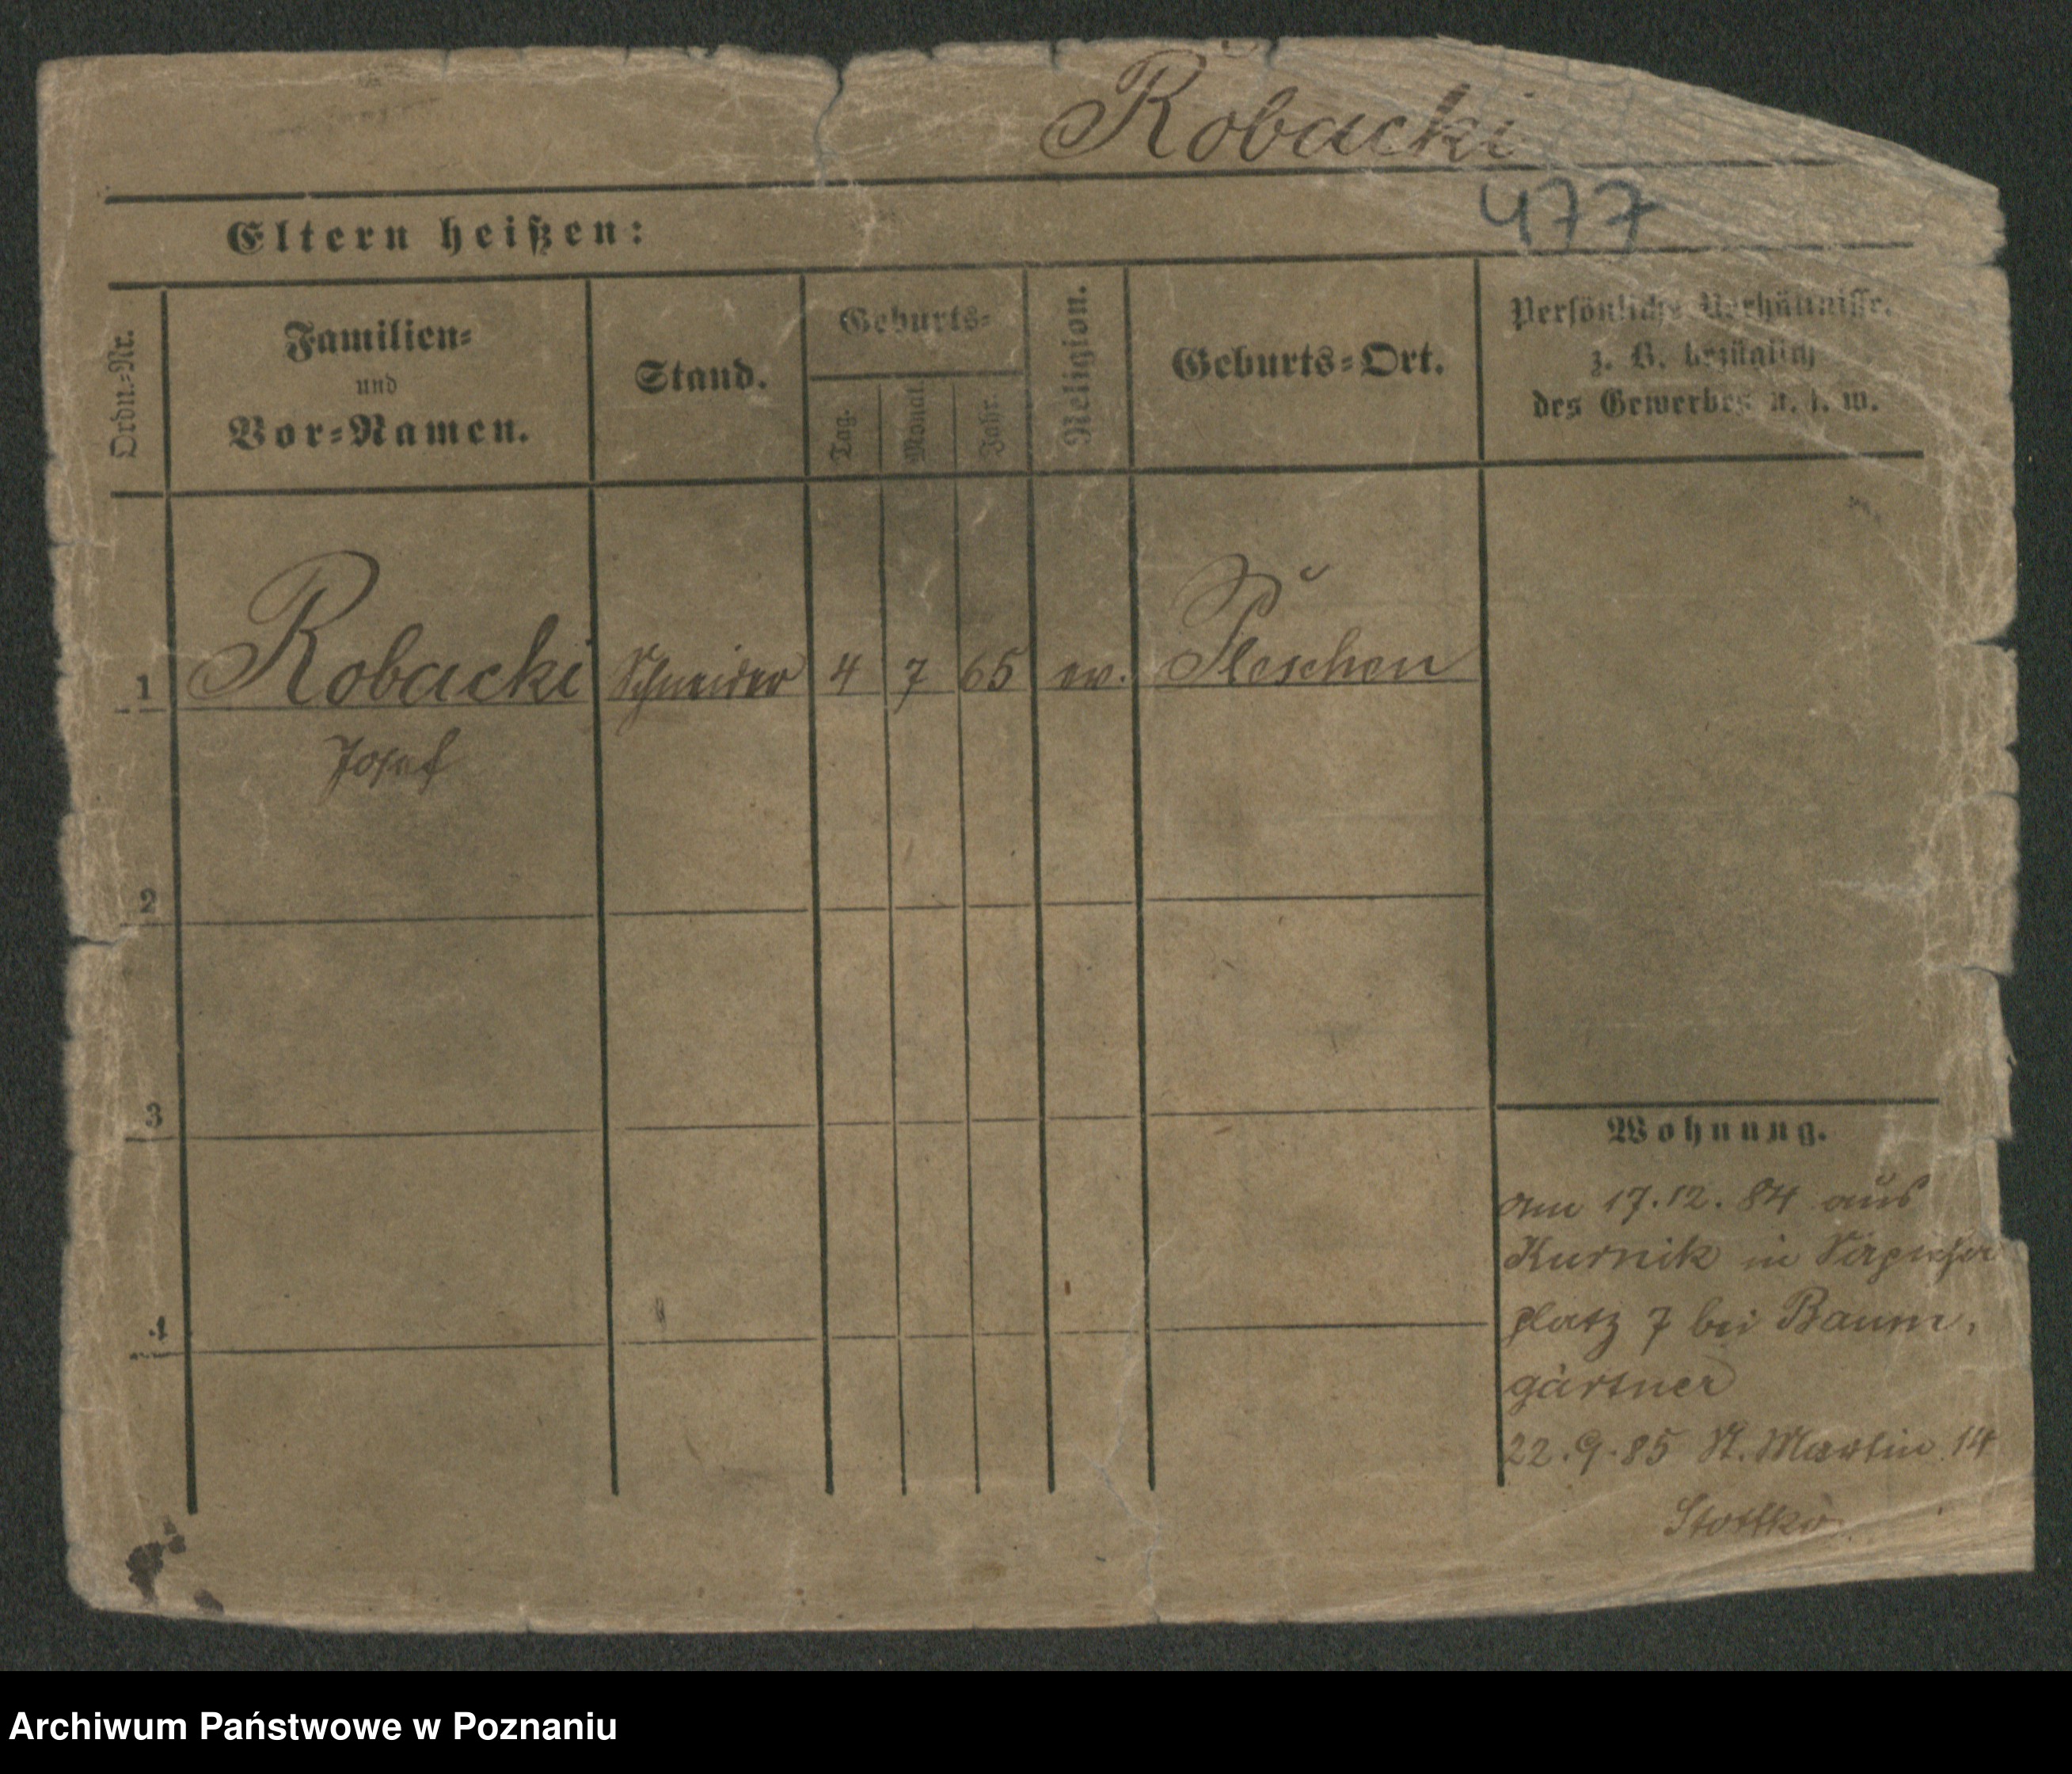 Robacki
477
Eltern heißen:
Ordn.-Nr.
Familien-
und
Vor-Namen.
Stand.
Geburts-
Tag.
Monat.
Jahr.
Religion.
Geburts-Ort.
Persönliche Verhältnisse.
z. B. bezüglich
des Gewerbes u. s. w.
1 Robacki Schneider 4 7 65 ev. Pleschen
Josef
2
3
4
Wohnung.
am 17.12.84 aus
Kurnik in
platz 7 bei Baum,
gärtner
22.9.85 St. Martin 14
Archiwum Państwowe w Poznaniu